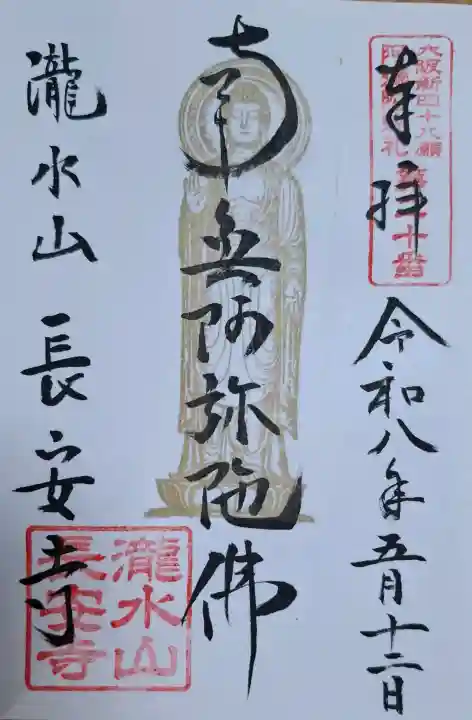 奉拝
令和八年五月十二日
南無阿弥陀佛
瀧水山 長安寺
大阪新四十八願
阿弥陀巡礼
十番
瀧水山
長安寺